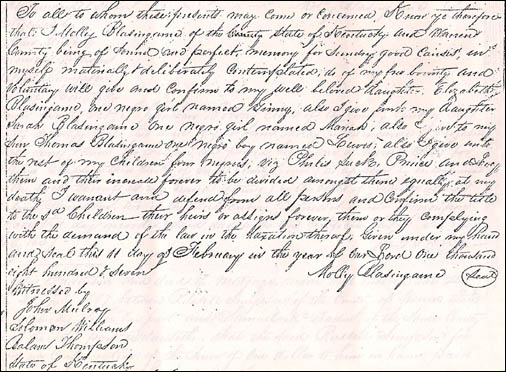 To all to whom these presents may come or concerned, Know ye therefore
that I Molley Blasingame of the County State of Kentucky and Warren
County being of Sound and perfect memory for Sunday good Causes, in
myself materially & deliberately Contemplated, do of my free bounty and
voluntary will give and Confirm to my well beloved daughter Elizabeth
Blasingame, one negro girl named Ginny, also I give unto my daughter
Sarah Blasingame One negro girl named Mariah; also I give to my
Son Thomas Blasingame one negro boy named Lewis; also I give unto
the rest of my Children four Negroes, viz Philis and
them and their increase forever to be divided amongst them equally at my
death, I warrant and defend from all persons and Confirm the title
to the sd Children their heirs or assigns forever, them or they complying
with the demand of the law in the taxation thereof, Given under my Hand
and Seal this 11 day of February in the year of Our Lord One thousand
eight hundred & Seven
Molley Blasingame Seal
Witnessed by
John Mulroy
Solomon Williams
Thompson
State of Kentucky